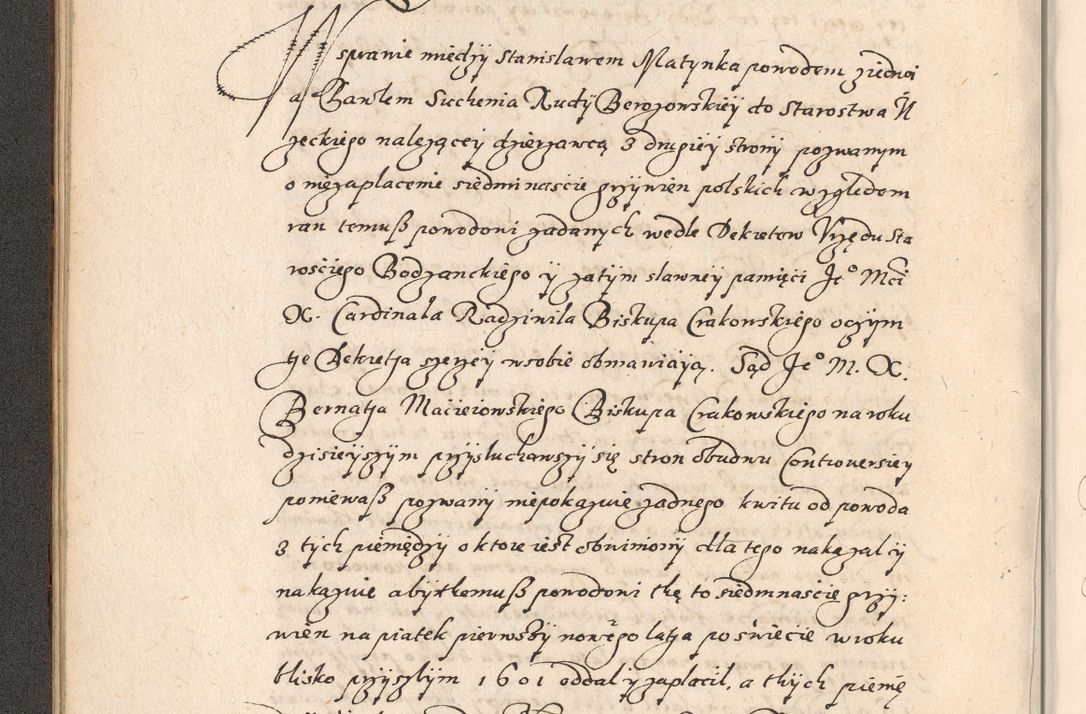 W sprawie między Stanisławem Matynka powodem z iedneÿ
a Pawłem Suchenia Rudÿ Berozowskieÿ do Starostwa Ił
zeckiego nalezącey dzierzawcą z drugieÿ stronÿ pozwanym
o niezapłacenie siedmi naście grzÿwien polskich względem
ran temuß powodoni zadanych wedle Dekretow Vrzędu Sta
rosciego Bodzanckiego ÿ zatÿm sławneÿ pamięci Je° Mći
X. Cardinała Radziwiła Biskupa Crakowskiego oczÿm
tje Dekretja szerzeÿ wsobie obmawiaią. Sąd Je° M. X.
Bernatja Macieiowskiego Biskupa Crakowskiego na roku
dzisieÿszÿm przÿsłuchawszÿ się stron obudwu Controuersieÿ
poniewaß pozwanÿ niepokazuie zadnego kwitu od powoda
z tÿch pieniędzÿ o ktore iest obwinionÿ dla tego nakazał ÿ
nakazuie abÿtkemuß powodoni tkę to siedmnaście grzÿ:
wien na piątek pierwszÿ nowego latja po święcie w roku
blisko przÿszłÿm 1601 oddał ÿ zapłacił, a tkÿch pienię